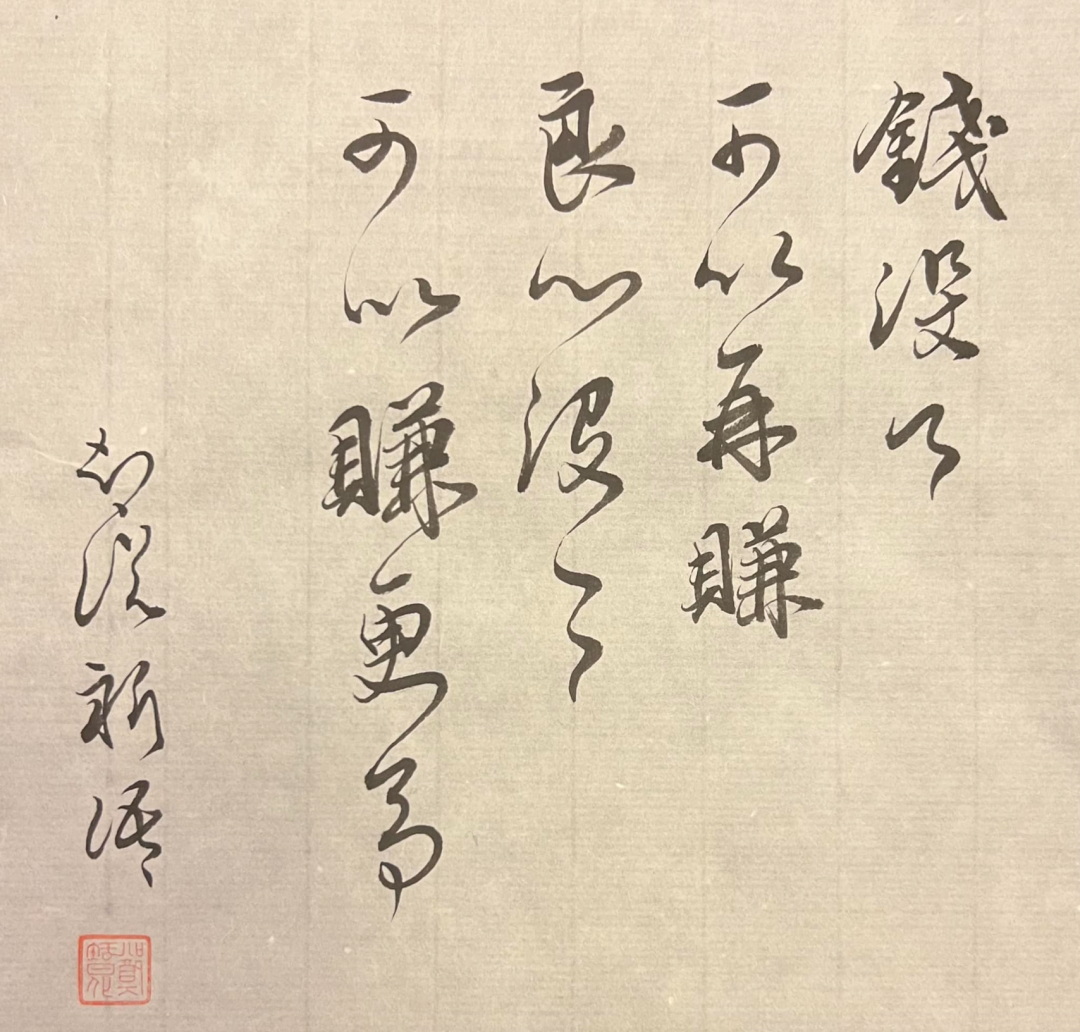 錢沒了
可以再賺
良心沒了
可以賺更多
說新語